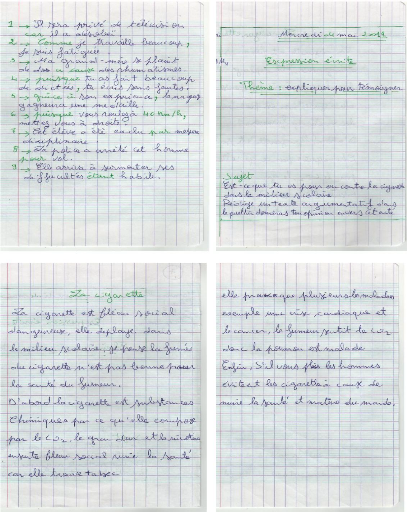 1 → Il sera privé de télévision
car il a désobéi.
2 → Comme je travaille beaucoup,
je suis fatigué.
3 → Ma grand-mère se plaint
de dos à cause des rhumatismes.
4 → puisque tu as fait beaucoup
de dictées, tu écris sans fautes.
5 → grâce à son expérience, le nageur
gagnera une médaille.
6 → puisque vous roulez à 40 km/h,
mettez vous à droite.
7 → Cet élève a été exclu par mesure
disciplinaire
8 → La police a arrêté cet homme
pour vol.
9 → Elle arriva à surmonter ses
difficultés étant habile.
Mercredi mai
Expression écrite
Thème : expliquer pour témoigner
Sujet
Est-ce que tu es pour ou contre la cigarette
dans le milieu scolaire
Rédige un texte argumentatif dans
lequel tu donneras ton opinion
La cigarette
La cigarette est fléau social
dangereux, elle déplaye dans
le milieu scolaire, je pense la fumé
de cigarette n'est pas bonne pour
la santé du fumeur.
D'abord la cigarette est substances
chimiques par ce qu'elle compose
par le CO2, le goudron et la nicotine
ensuite fléau social nuire la santé
car elle
elle provoque plusieurs maladies
exemple une crise cardiaque et
le cancer, le fumeur le CO2
donc le poumon est malade
Enfin, S'il vous plés les hommes
évitent les cigarettes à cause de
nuire la santé et du monde.